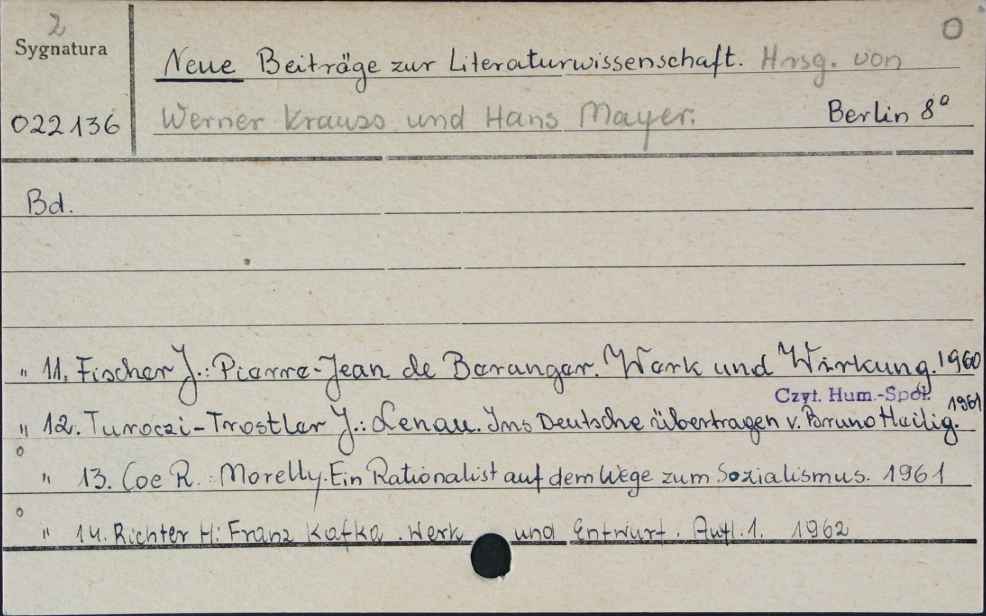 2
O
Sygnatura
Neue Beiträge zur Literaturwissenschaft. Hrsg. von
022136
Werner Krauss und Hans Mayer. Berlin 8°
Bd.
" 11. Fischer J.: Pierre-Jean de Beranger. Werk und Wirkung. 1960
Czyt. Hum.-Społ.
" 12. Turoczi-Trostler J.: Lenau. Ins Deutsche übertragen v. Bruno Heilig. 1961
o
" 13. Coe R.: Morelly. Ein Rationalist auf dem Wege zum Sozialismus. 1961
o
" 14. Richter H: Franz Kafka. Werk und Entwurf. Aufl. 1. 1962